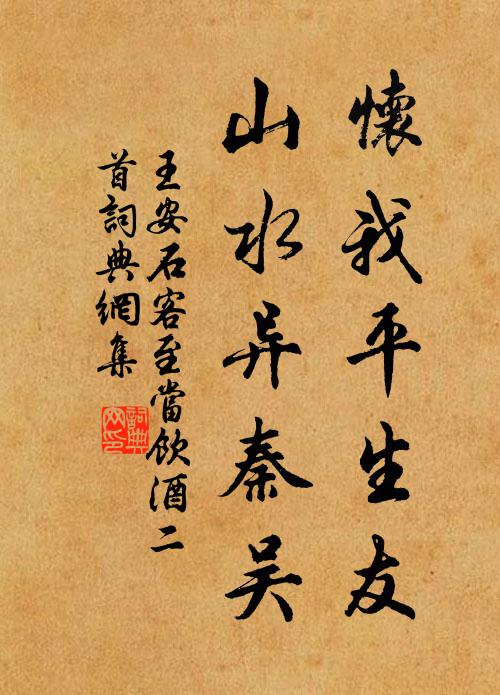 懷我平生友
山水异秦吳
王安石客至當飲酒二
首詞典網集
詞典
网印